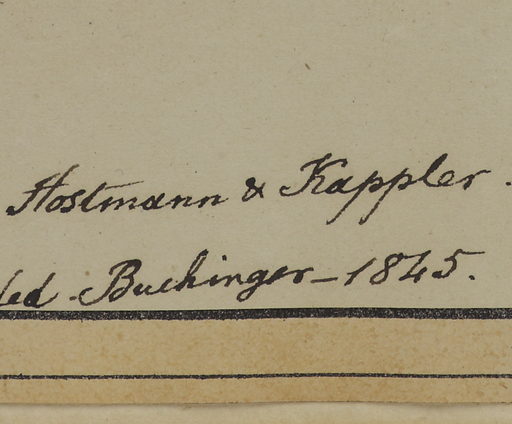 Hostmann & Kappler.
ded. Buchinger – 1845.